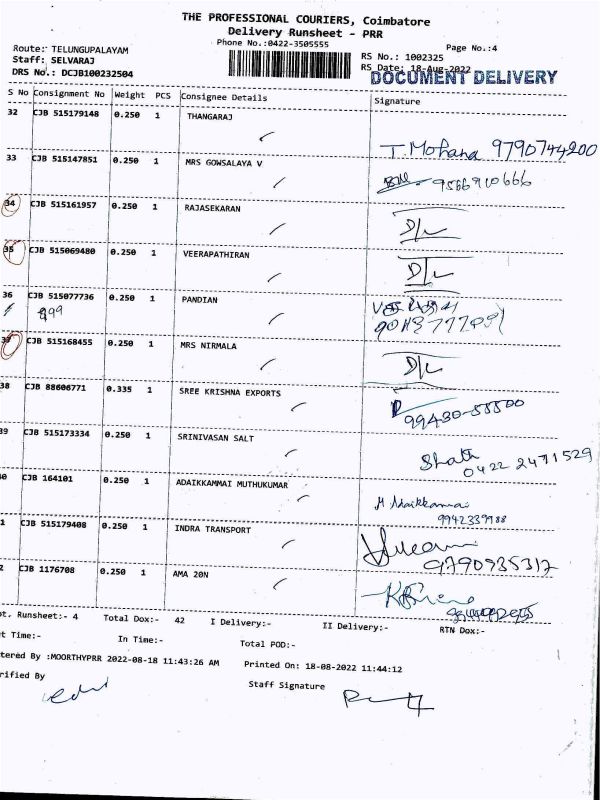 THE PROFESSIONAL COURIERS, Coimbatore
Delivery Runsheet - PRR
Phone No.:0422-3505555
Page No.:4
Route: TELUNGUPALAYAM
Staff: SELVARAJ
RS No.: 1002325
RS Date: 18-Aug-2022
DRS No.: DCJB100232504
DOCUMENT DELIVERY
S No Consignment No Weight PCS Consignee Details Signature
32 CJB 515179148 0.250 1 THANGARAJ
T. Mohana 9790744200
33 CJB 515147851 0.250 1 MRS GOWSALAYA V
9566910666
34 CJB 515161957 0.250 1 RAJASEKARAN
D/L
35 CJB 515069480 0.250 1 VEERAPATHIRAN
D/L
36 CJB 515077736 0.250 1 PANDIAN
899
37 CJB 515168455 0.250 1 MRS NIRMALA
D/L
38 CJB 88606771 0.335 1 SREE KRISHNA EXPORTS
99430-55500
39 CJB 515173334 0.250 1 SRINIVASAN SALT
0422 2471529
0 CJB 164101 0.250 1 ADAIKKAMMAI MUTHUKUMAR
M. Adaikkammai
9942339988
1 CJB 515179408 0.250 1 INDRA TRANSPORT
9790935317
2 CJB 1176708 0.250 1 AMA 20N
pt. Runsheet:- 4 Total Dox:- 42 I Delivery:- II Delivery:- RTN Dox:-
t Time:- In Time:- Total POD:-
tered By :MOORTHYPRR 2022-08-18 11:43:26 AM Printed On: 18-08-2022 11:44:12
rified By Staff Signature